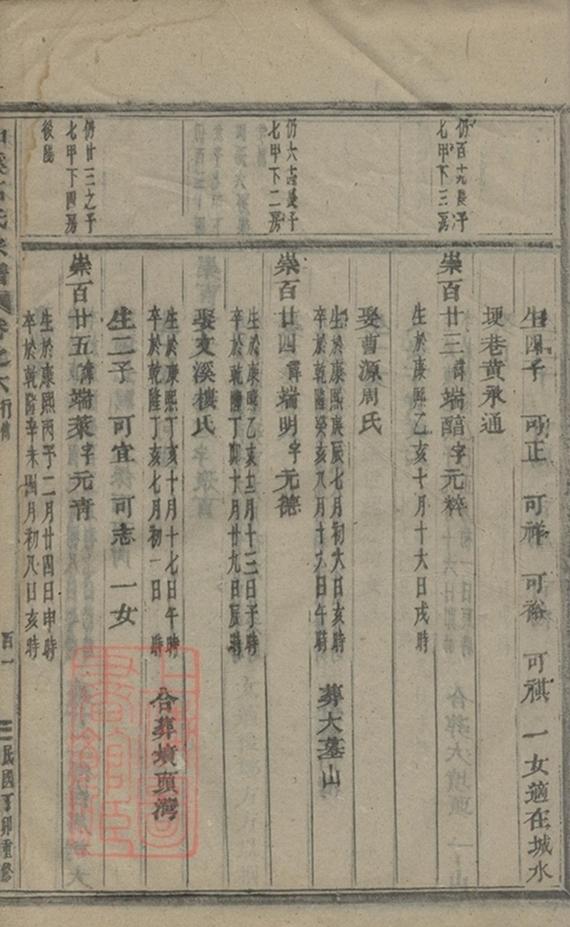 生四子 可正 可祥 可裕 可祺 一女適在城水
埂巷黃承通
仍百十九長子
七甲下三房
崇百廿三諱端醇字元粹
生於康熙乙亥十月十六日戌時
娶曹源周氏
生於康熙庚辰七月初六日亥時
卒於乾隆癸亥八月十六日午時
葬大墓山
仍六十長子
七甲下二房
崇百廿四諱端明字元德
生於康熙乙亥十二月十三日子時
卒於乾隆丁卯十月廿九日辰時
娶文溪樓氏
生於康熙丁亥十月十七日午時
卒於乾隆丁亥七月初一日 時
合葬墳頭灣
生二子 可宜 可志 一女
仍廿三之子
七甲下四房
後陽
崇百廿五諱端萊字元青
生於康熙丙子二月廿四日申時
卒於乾隆辛未四月初八日亥時
氏宗譜 卷之六 行傳
百一
民國丁卯重修